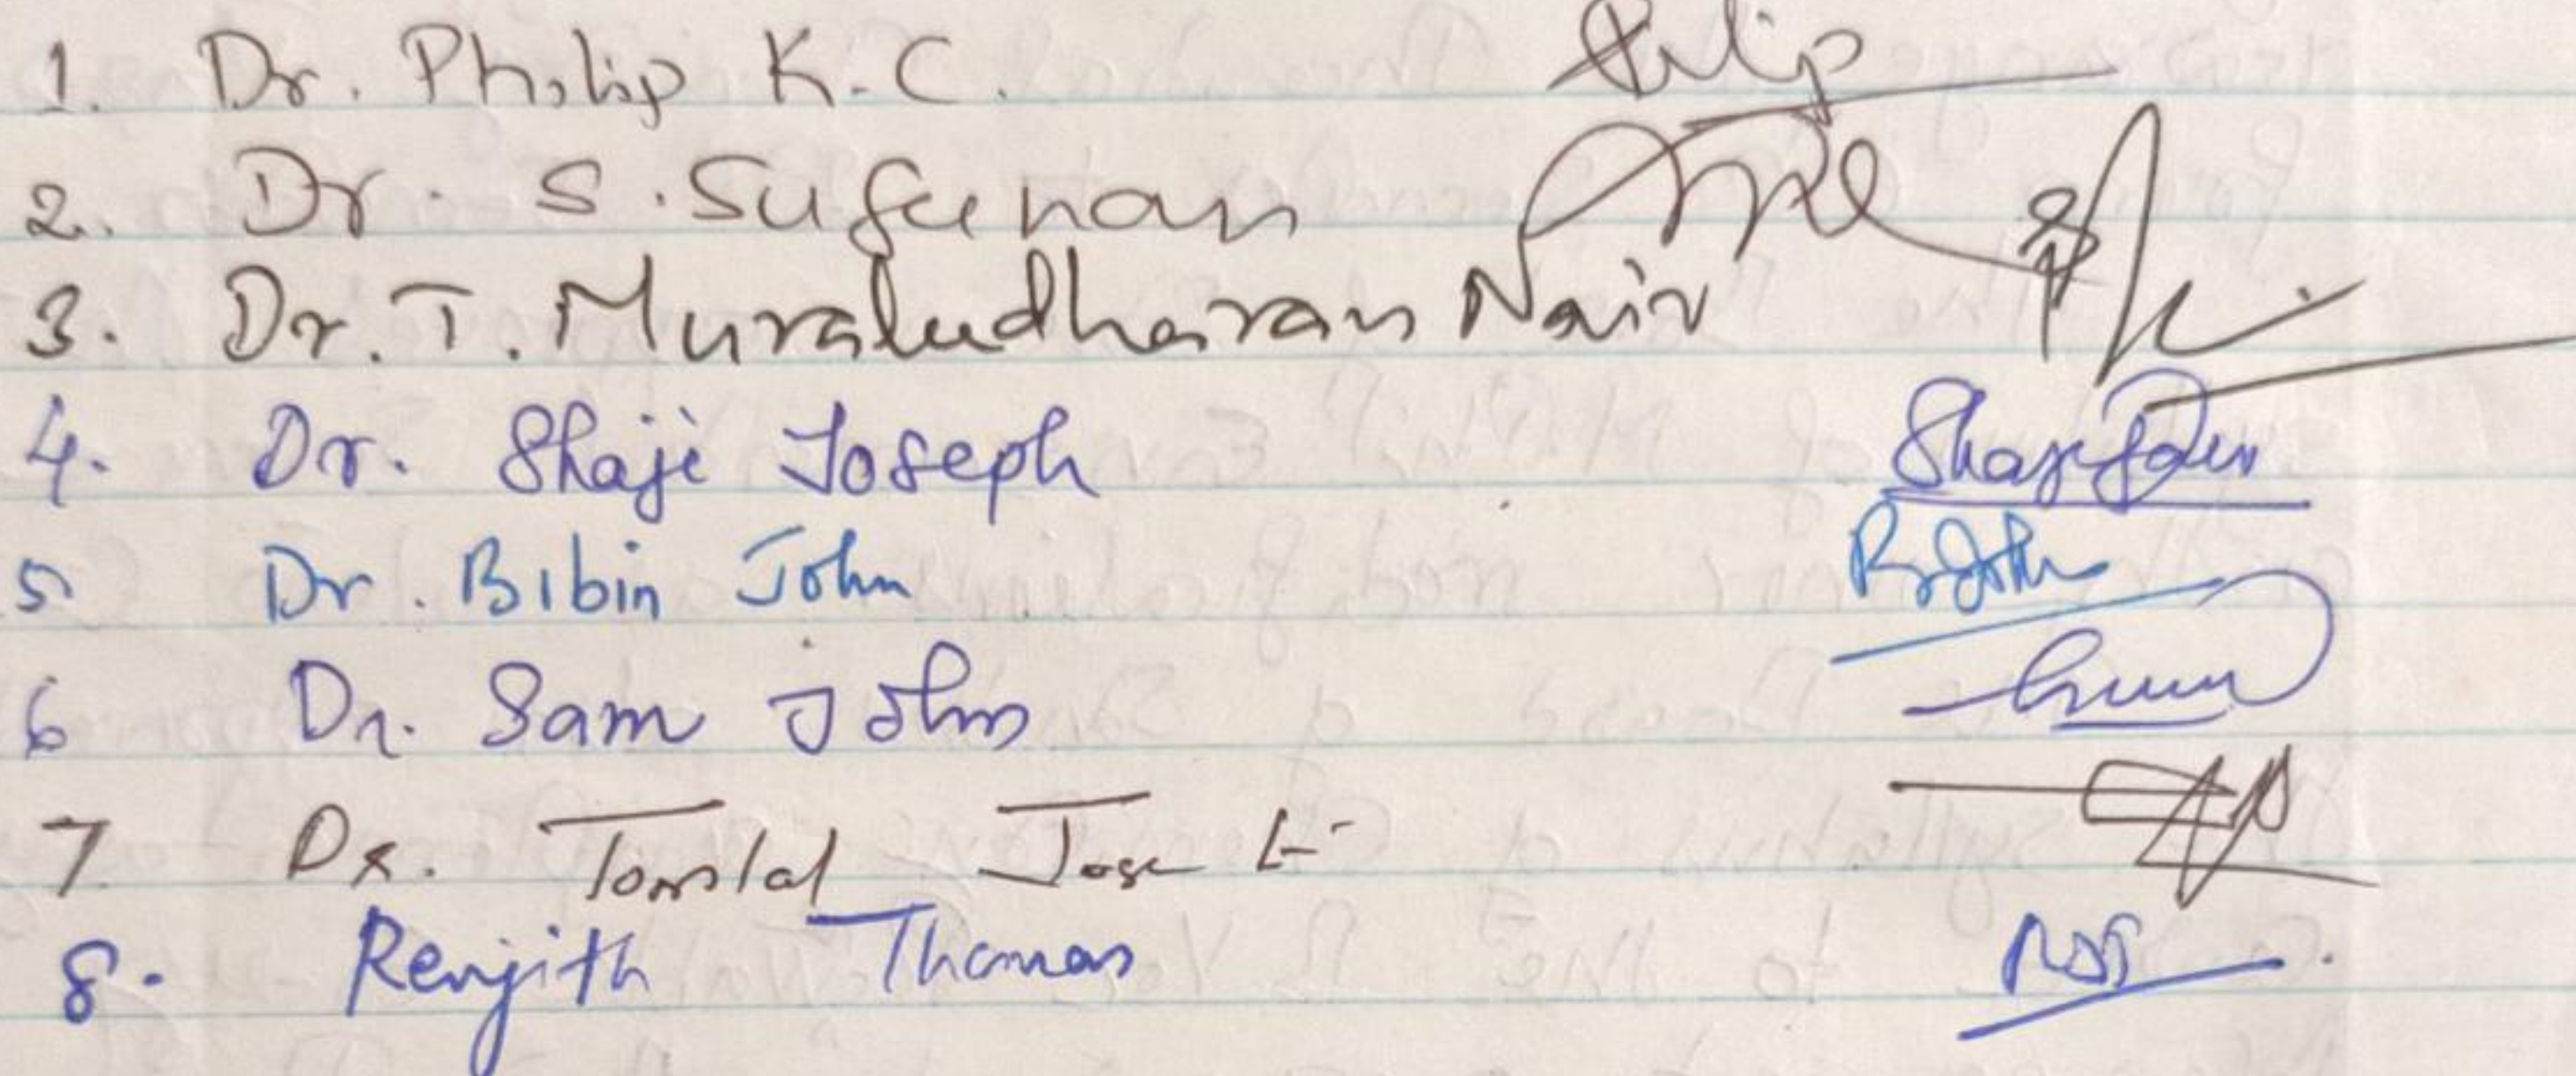 1. Dr. Philip K.C. Philip
2. Dr. S. Sugunan
3. Dr. T. Muraleedharan Nair
4. Dr. Shaji Joseph
5 Dr. Bibin John
6 Dr. Sam John
7 Dr. Tomlal Jose E
8. Renjith Thomas